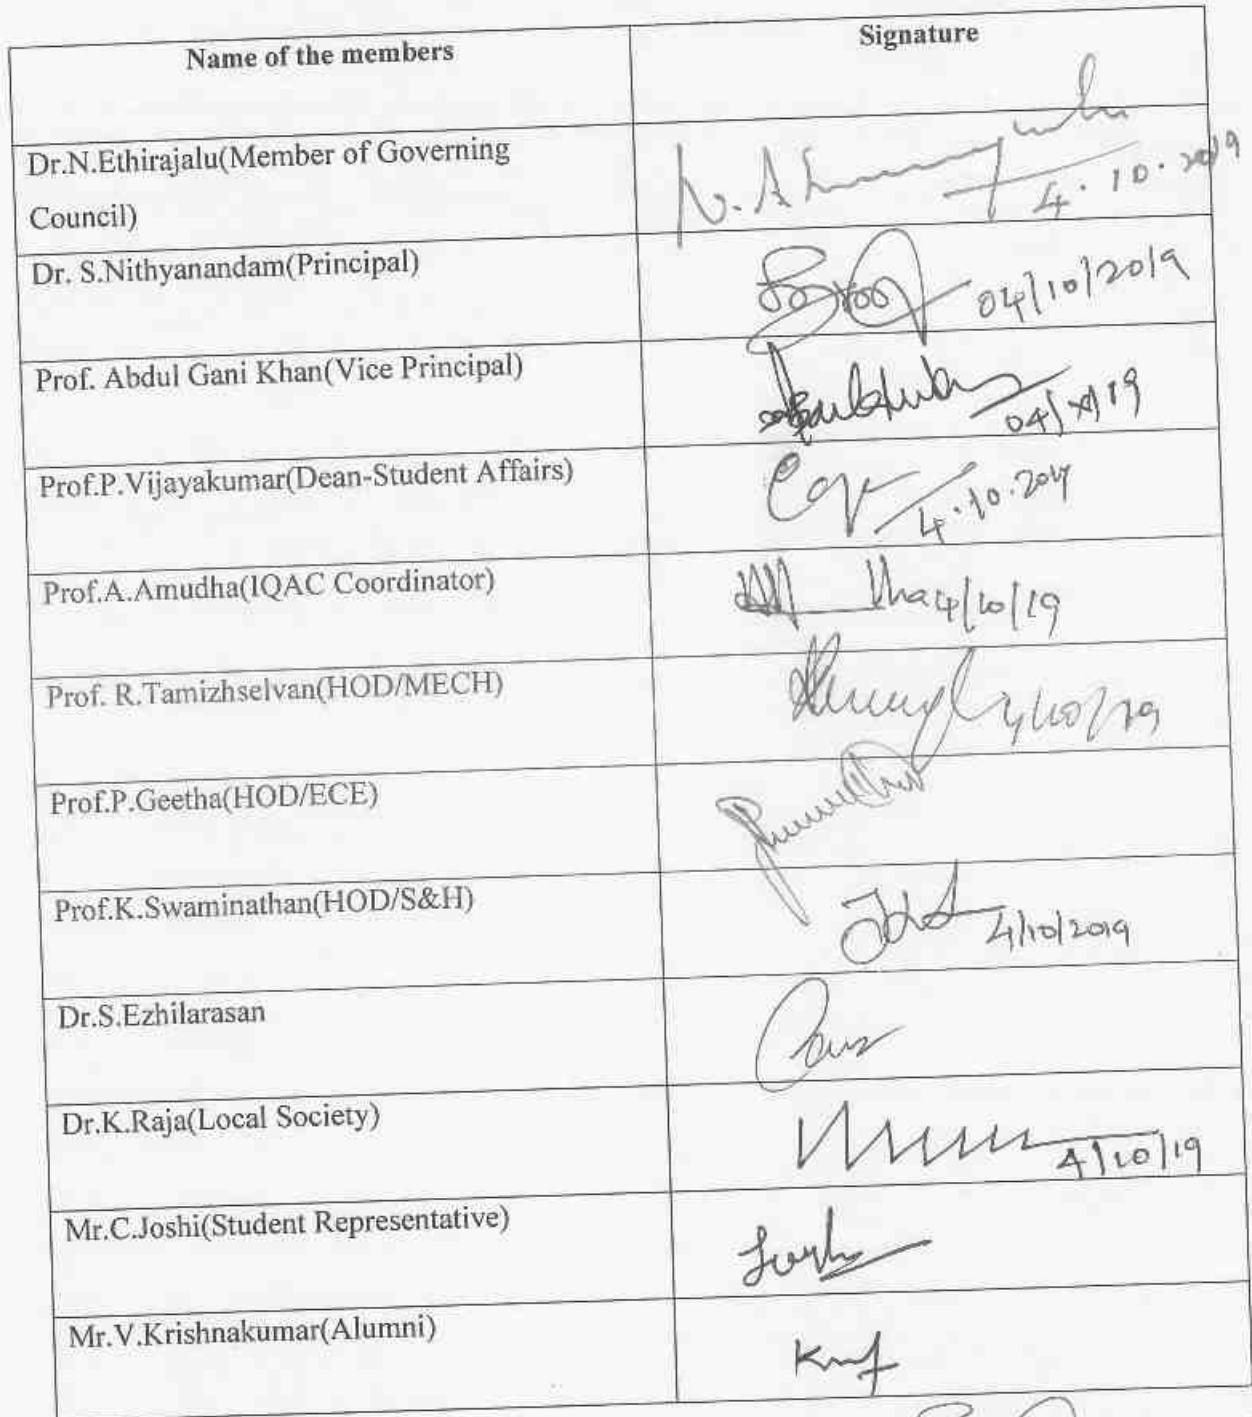 Name of the members
Signature
Dr.N.Ethirajalu(Member of Governing
Council)
4.10.2019
Dr. S.Nithyanandam(Principal)
04/10/2019
Prof. Abdul Gani Khan(Vice Principal)
Prof.P.Vijayakumar(Dean-Student Affairs)
Prof.A.Amudha(IQAC Coordinator)
4/10/19
Prof. R.Tamizhselvan(HOD/MECH)
Prof.P.Geetha(HOD/ECE)
Prof.K.Swaminathan(HOD/S&H)
4/10/2019
Dr.S.Ezhilarasan
Dr.K.Raja(Local Society)
4/10/19
Mr.C.Joshi(Student Representative)
Mr.V.Krishnakumar(Alumni)